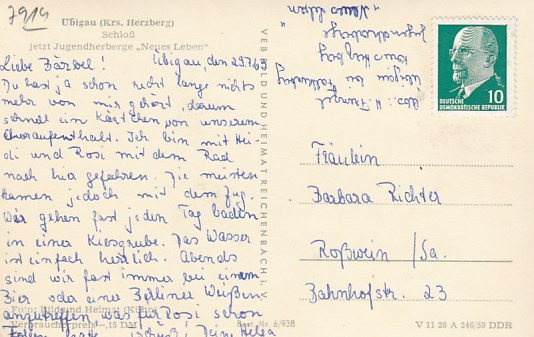 7914
Ubigau (Krs. Herzberg)
Schloß
jetzt Jugendherberge „Neues Leben"
Liebe Bärbel! Übigau, den 29.7.63
Du hast ja schon recht lange nichts
mehr von mir gehört, darum
schnell ein Kärtchen von unserem
Choraufenthalt. Ich bin mit Hei-
di und Rosi mit dem Rad
nach hier gefahren. Die meisten
kamen jedoch mit dem Zug.
Wir gehen fast jeden Tag baden
in einer Kiesgrube. Das Wasser
ist einfach herrlich. Abends
sind wir fast immer bei einem
Bier oder einer Berliner Weißen
anzutreffen, was für Rosi schon
Foto: Bild und Heimat (Kühn)
Verbraucherpreis —,15 DM
Best. Nr. 6/938
Tschüß! Deine Helga
VEB BILD UND HEIMAT REICHENBACH i. V.
Übigau bei Falkenberg
Jugendherberge
"Neues Leben"
DEUTSCHE
DEMOKRATISCHE REPUBLIK
10
Fräulein
Barbara Richter
Roßwein /Sa.
Bahnhofstr. 23
V 11 28 A 246/59 DDR